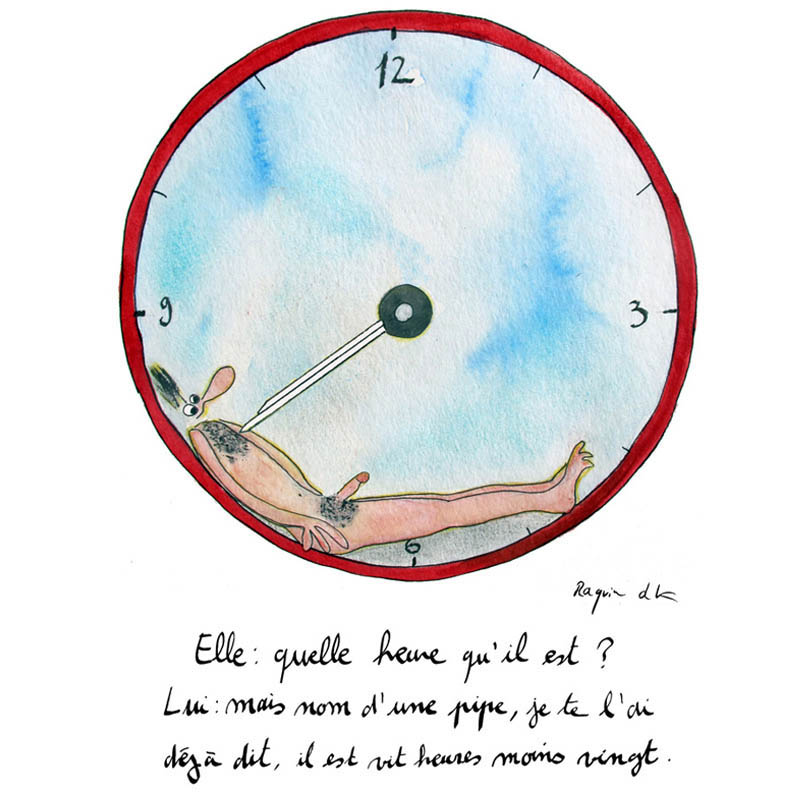 12
9
3
6
Raquin dk
Elle: quelle heure qu'il est ?
Lui: mais nom d'une pipe, je te l'ai
déjà dit, il est vit heures moins vingt.